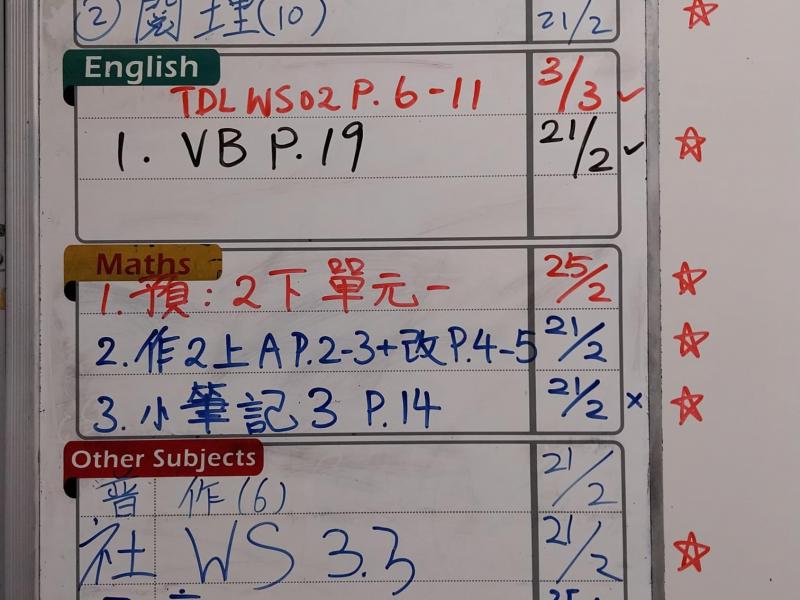 ② 閱 理(10) 21/2
English
TDL WS02 P.6-11 3/3 ✓
1. VB P.19 21/2 ✓
Maths
1. 預: 2下單元一 25/2
2. 作2上A P.2-3+改P.4-5 21/2
3. 小筆記3 P.14 21/2 ×
Other Subjects
普 作(6) 21/2
社 WS 3.3 21/2